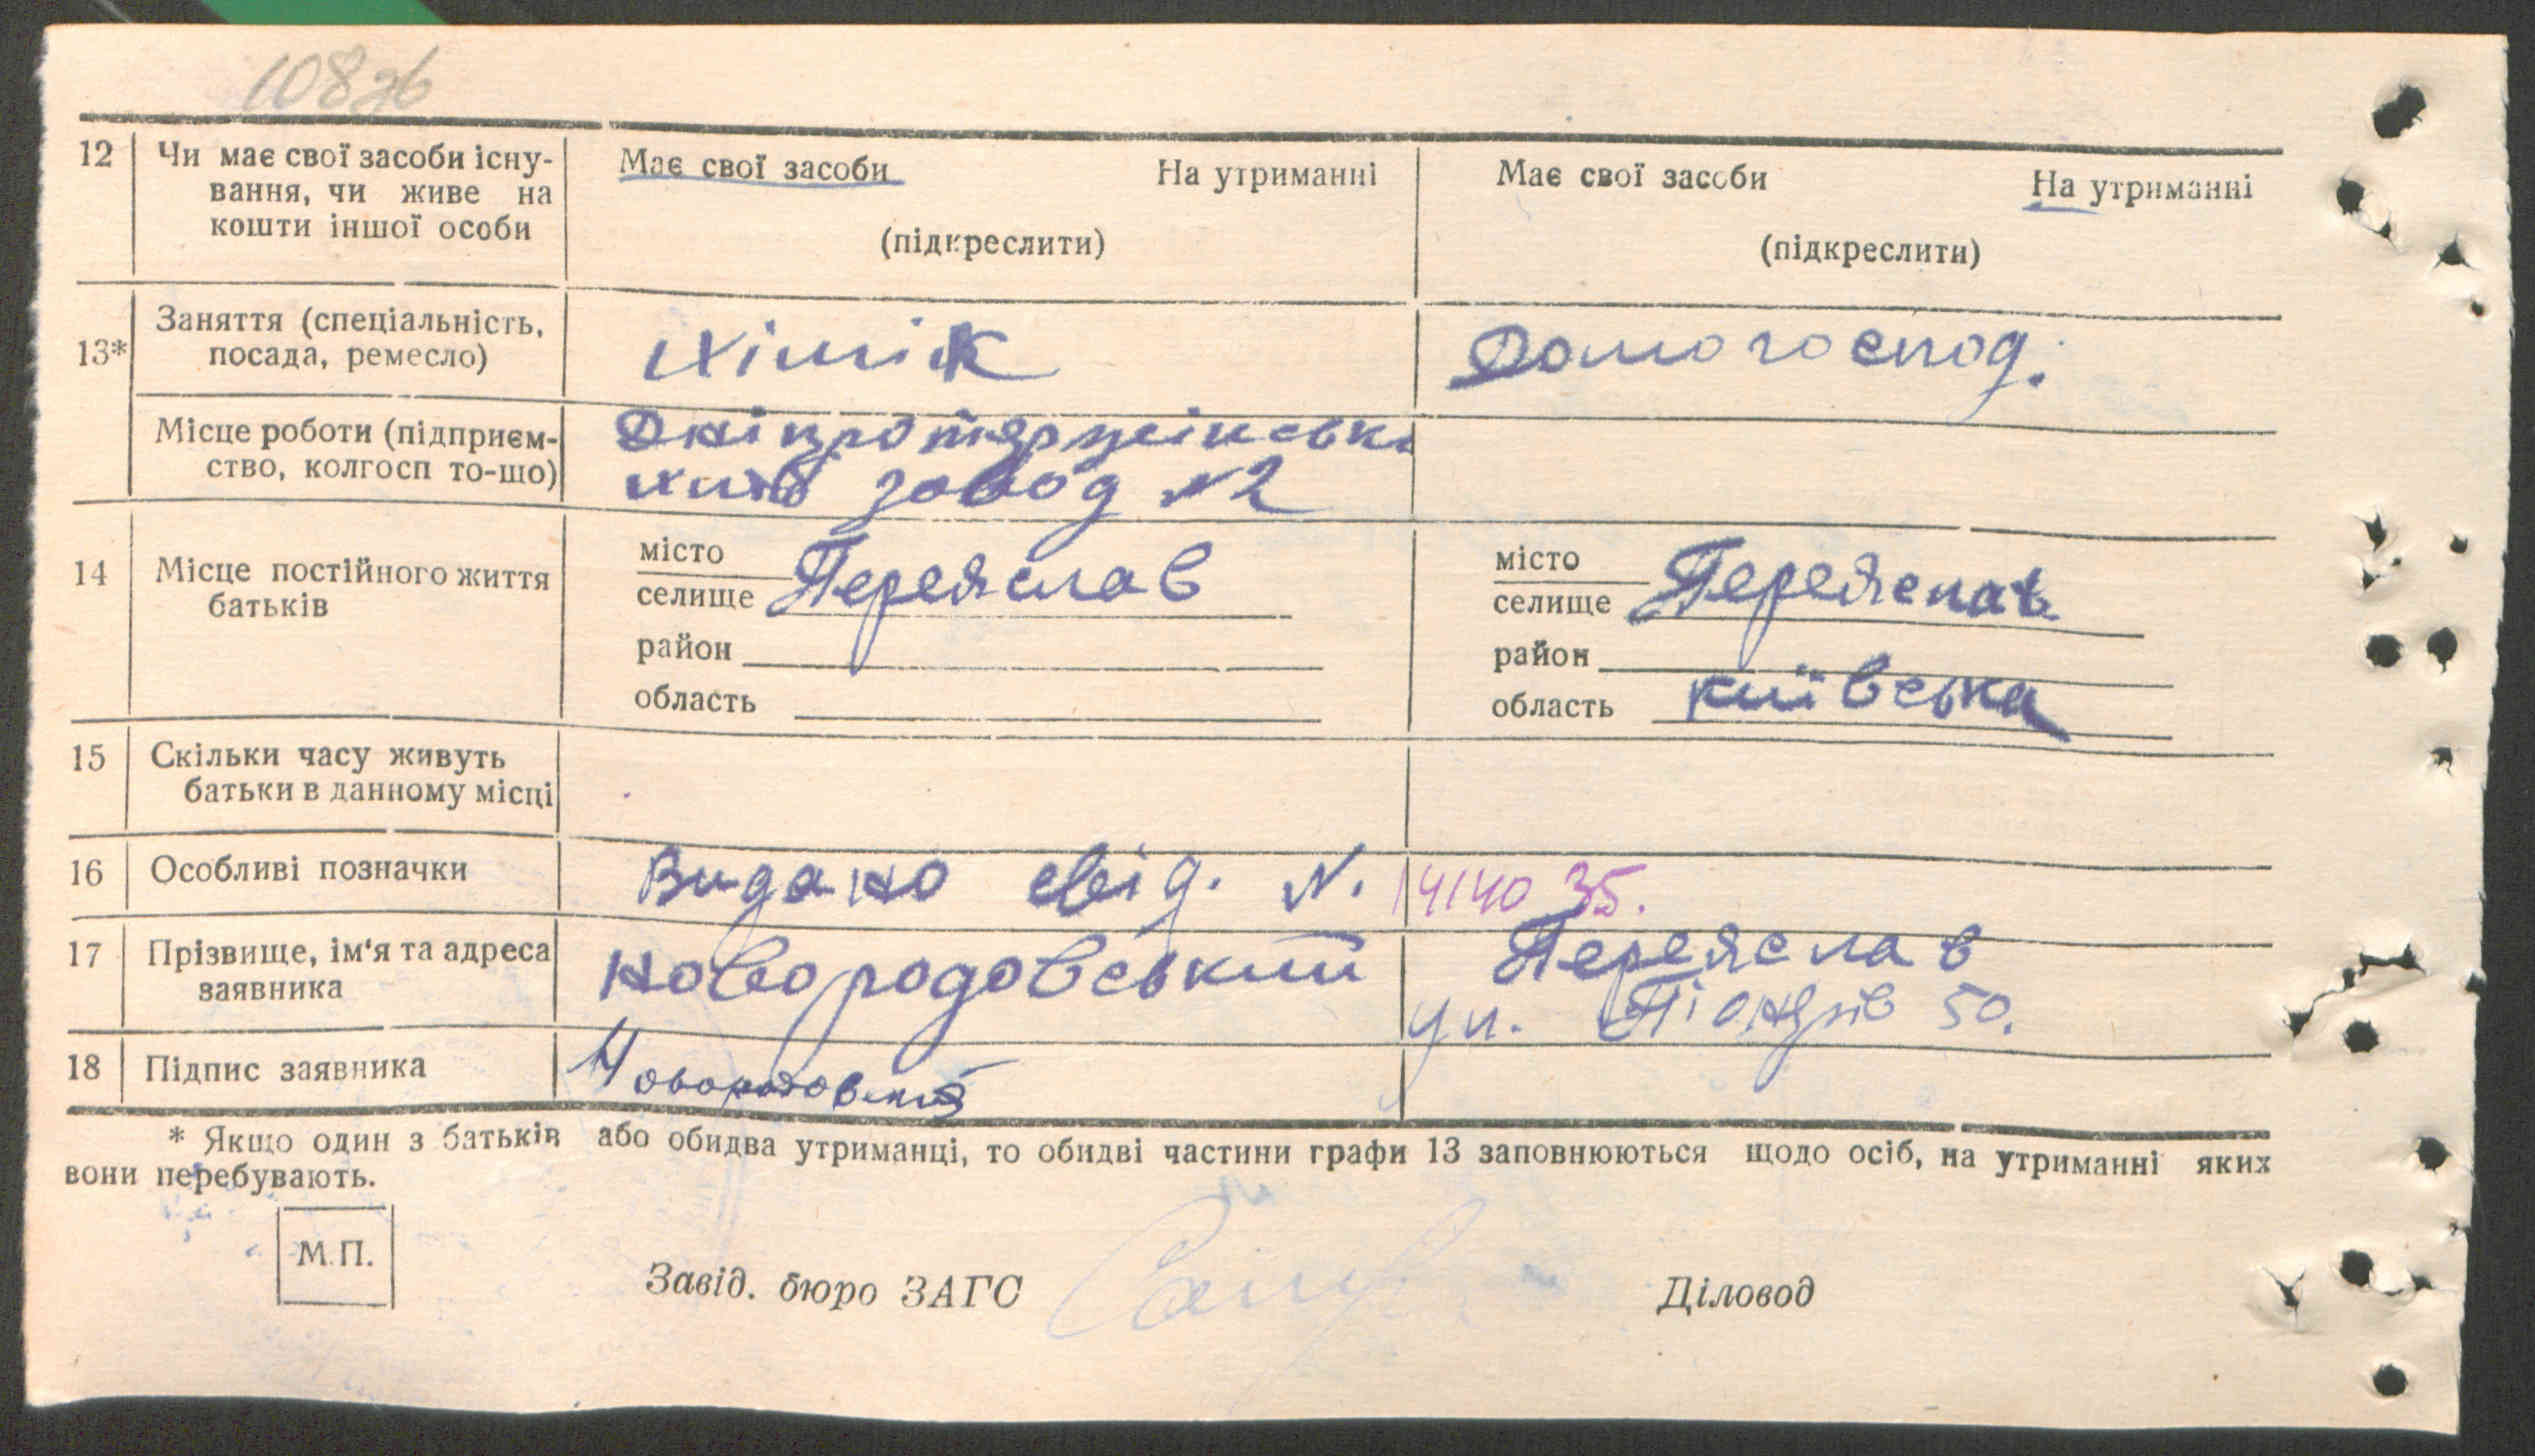 108зв
12 Чи має свої засоби існу- Має свої засоби На утриманні Має свої засоби На утриманні
вання, чи живе на
кошти іншої особи (підкреслити) (підкреслити)
13* Заняття (спеціальність, Хімік Домогоспод.
посада, ремесло)
Місце роботи (підприєм-
ство, колгосп то-що) завод №2
14 Місце постійного життя місто Переяслав місто Переяслав
батьків селище селище
район район
область область київська
15 Скільки часу живуть
батьки в данному місці
16 Особливі позначки Видано свід. N. 14140 35.
17 Прізвище, ім'я та адреса Новородовський Переяслав
заявника ул. Піонерів 50.
18 Підпис заявника
* Якщо один з батьків або обидва утриманці, то обидві частини графи 13 заповнюються щодо осіб, на утриманні яких
вони перебувають.
М.П.
Завід. бюро ЗАГС Діловод